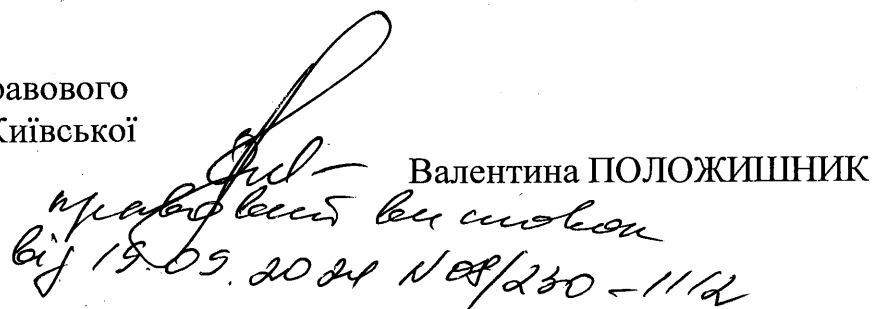 равового
Київської
Валентина ПОЛОЖИШНИК
правовий висновок
від 19.09.2024 N 08/230-1112